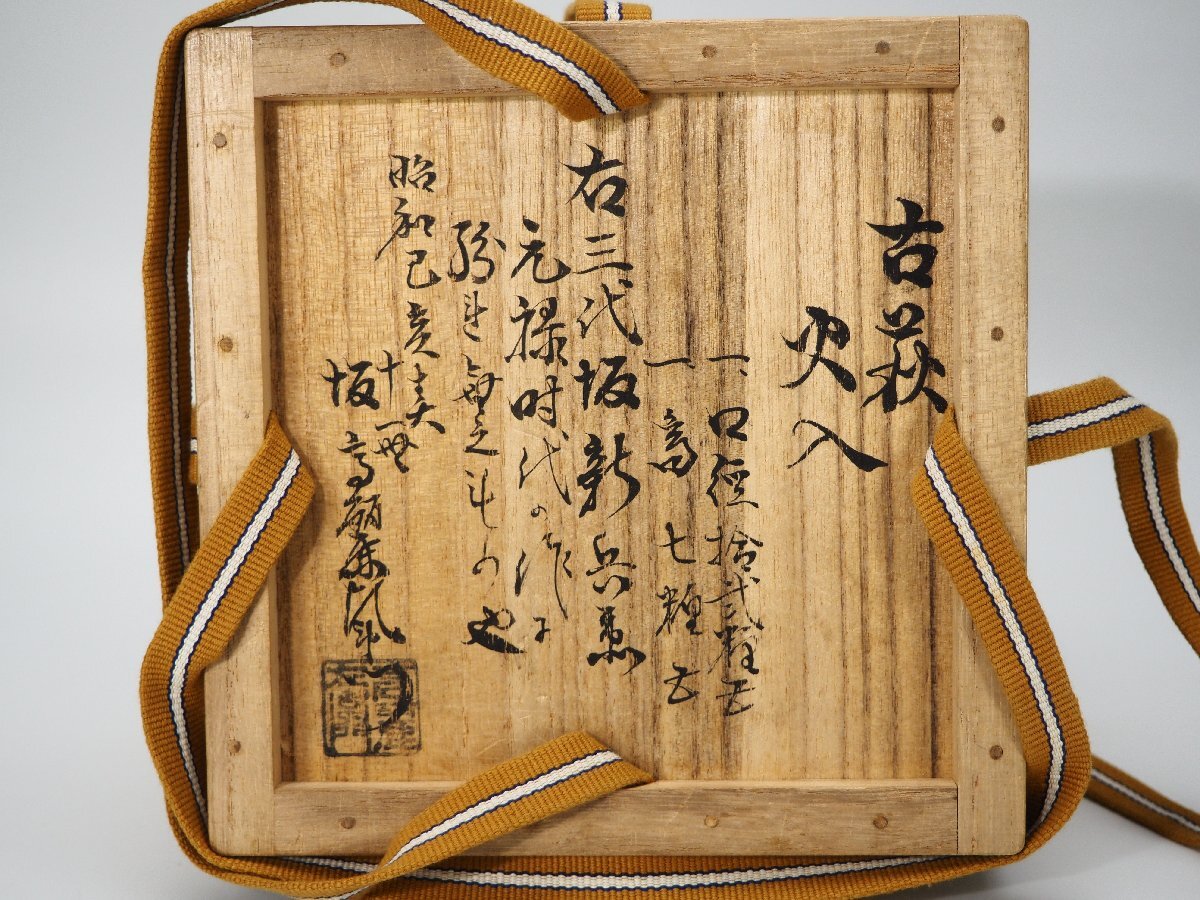 古萩
火入
一、口径拾弐糎五
一、高七糎五
右三代坂新兵衛
元禄時代の作に
紛れ無之もの也
昭和己亥
十一世
坂高麗左衛門